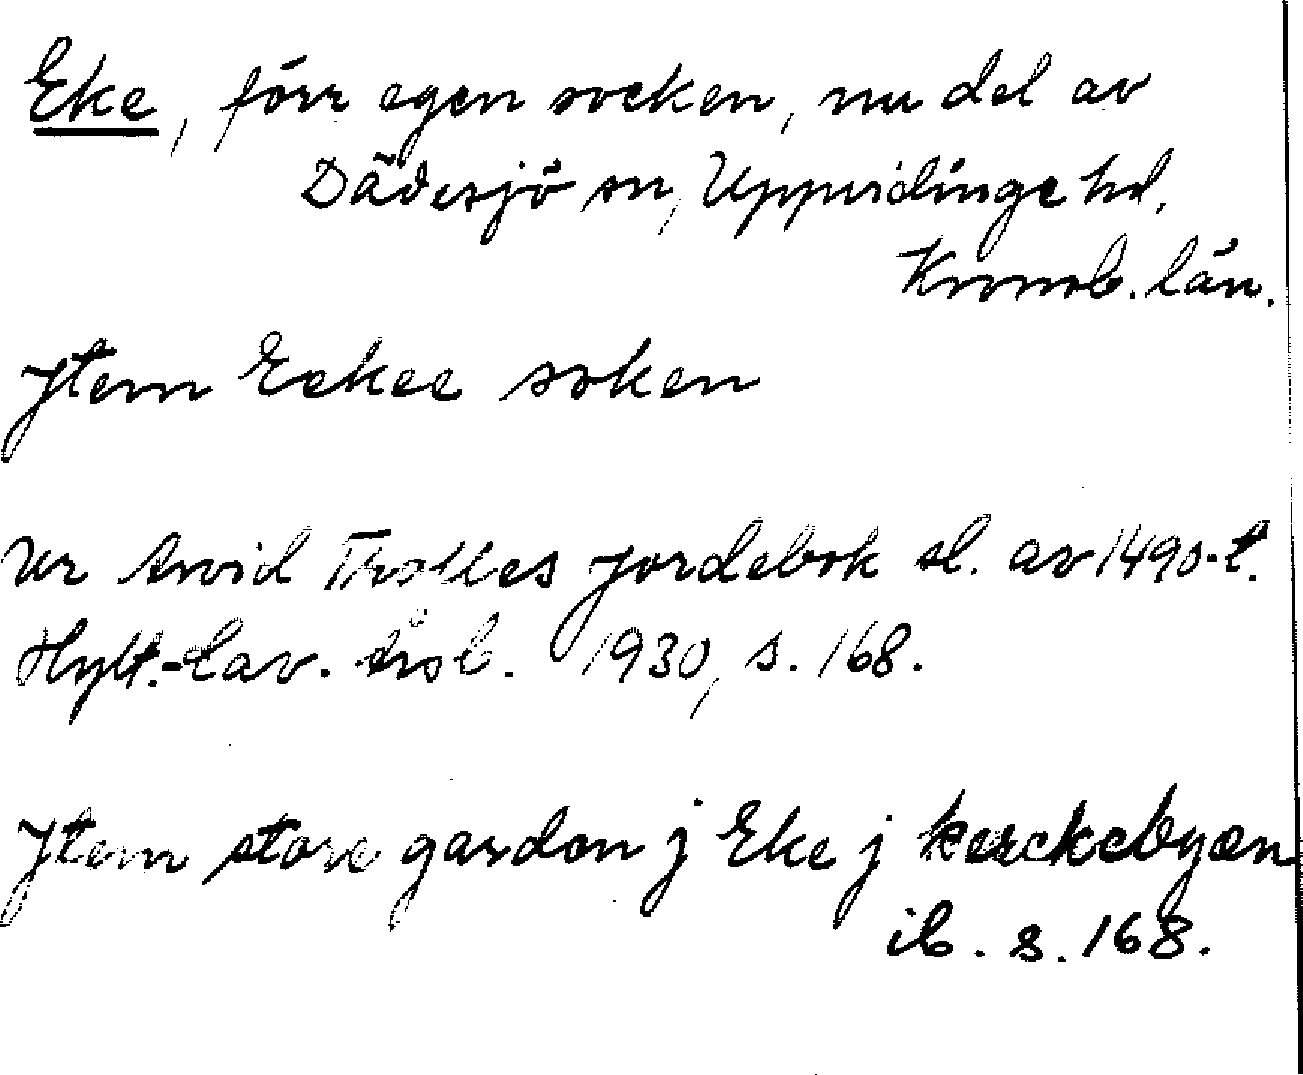 Eke, förr egen socken, nu del av
Dädesjö sn, Uppvidinge hd,
Kronob. län.
Jtem Eekee soken
Ur Arvid Trolles jordebok sl. av 1490-t.
Hylt.-Cav. årsb. 1930, s. 168.
Jtem store garden j Eke j kerckebyæn
ib. s. 168.